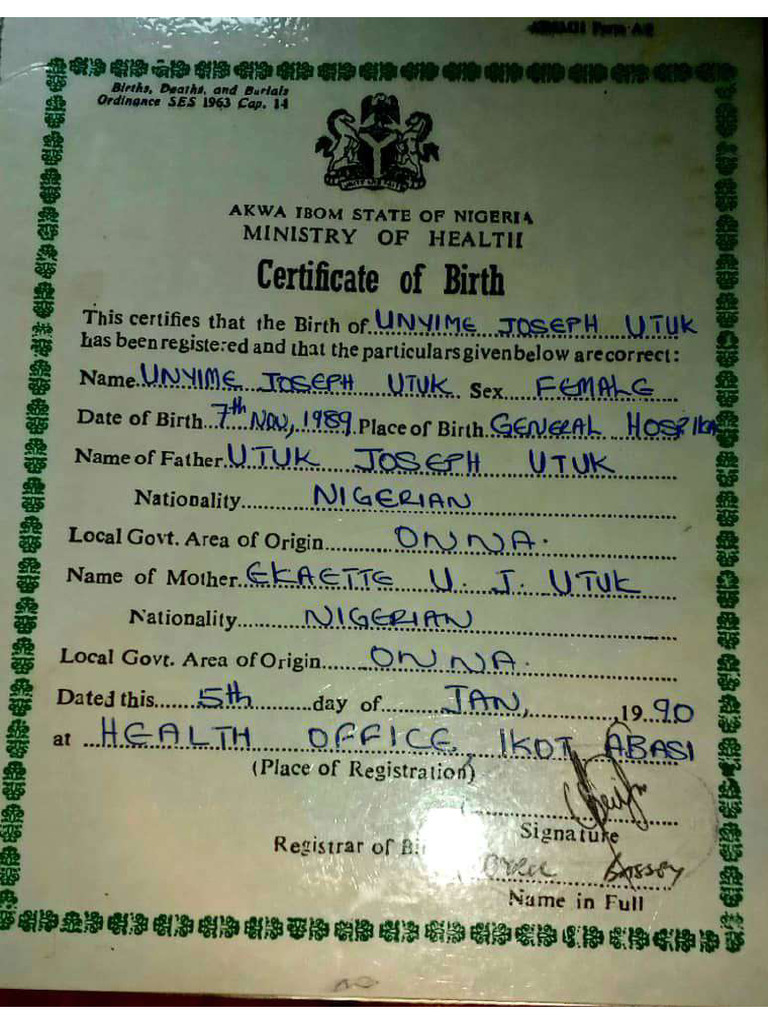 Births, Deaths, and Burials
Ordinance SES 1963 Cap. 14
AKWA IBOM STATE OF NIGERIA
MINISTRY OF HEALTH
Certificate of Birth
This certifies that the Birth of UNYIME JOSEPH UTUK
has been registered and that the particulars given below are correct:
Name UNYIME JOSEPH UTUK Sex FEMALE
Date of Birth 7th NOV, 1989 Place of Birth GENERAL HOSPITAL
Name of Father UTUK JOSEPH UTUK
Nationality NIGERIAN
Local Govt. Area of Origin ONNA.
Name of Mother EKAETTE U. J. UTUK
Nationality NIGERIAN
Local Govt. Area of Origin ONNA.
Dated this 5th day of JAN, 1990
at HEALTH OFFICE, IKOT ABASI
(Place of Registration)
Signature
Registrar of
Bassey
Name in Full